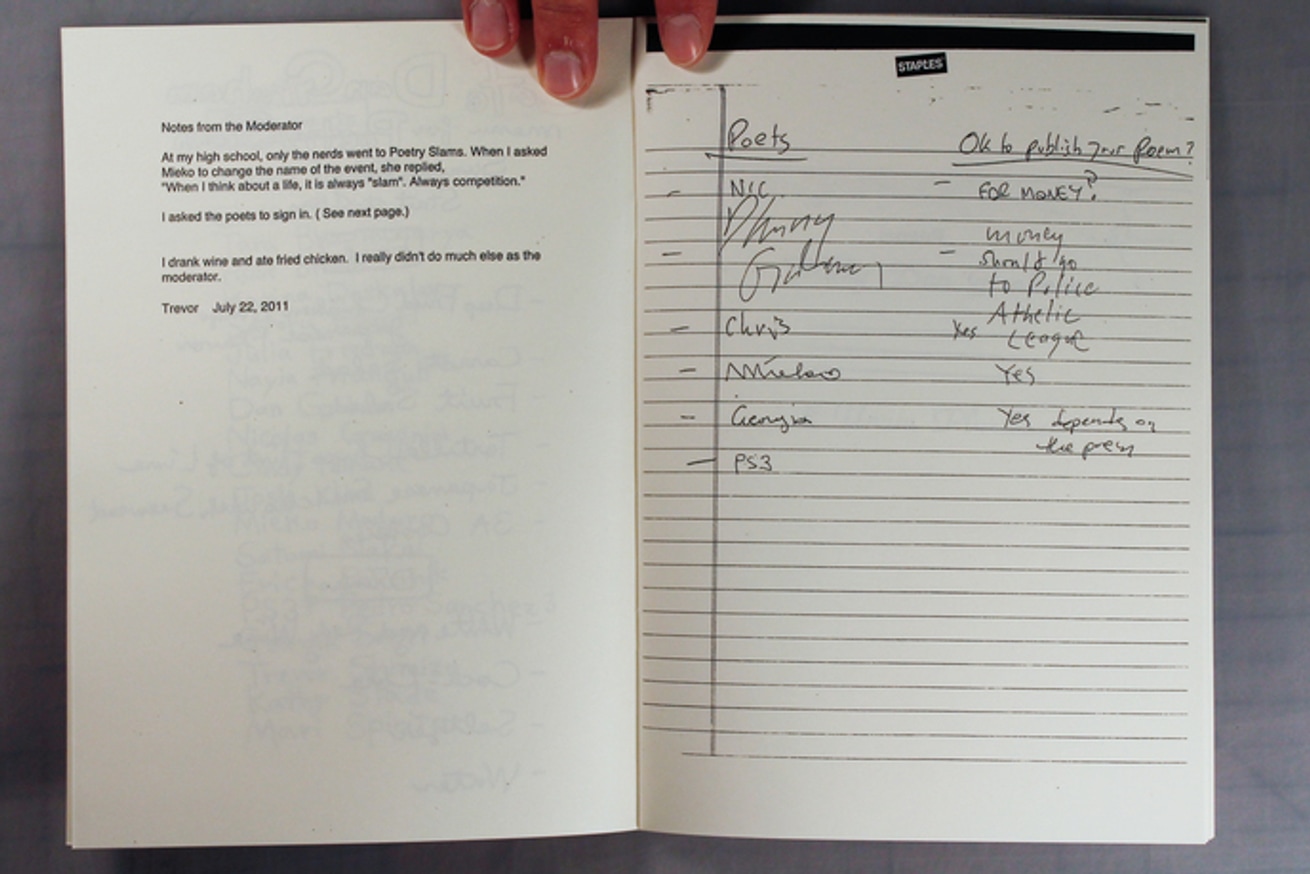 Notes from the Moderator
At my high school, only the nerds went to Poetry Slams. When I asked
Mieko to change the name of the event, she replied,
"When I think about a life, it is always "slam". Always competition."
I asked the poets to sign in. ( See next page.)
I drank wine and ate fried chicken. I really didn't do much else as the
moderator.
Trevor July 22, 2011
STAPLES
Poets
Ok to publish your Poem?
- NIC - FOR MONEY?
money
- - should go
to Police
Athelic
- Chris Yes League
- Mieko Yes
- Georgia Yes depends on
the press
- PS3